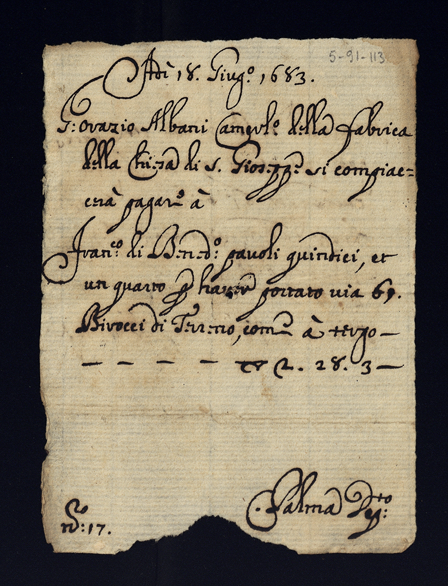 5-91-113
Adi 18. Giug.o 1683.
S.r Orazio Albani Camerl.o della fabrica
della Chiesa di S. Gioseppe si compiac=
cerà pagare à
Fran.co di Bened.o pavoli quindici, et
un quarto p haver portato via 69.
Birocci di Terreno, come à tergo —
— — — — 28. 3 —
Palma Dep.to
N.o: 17.